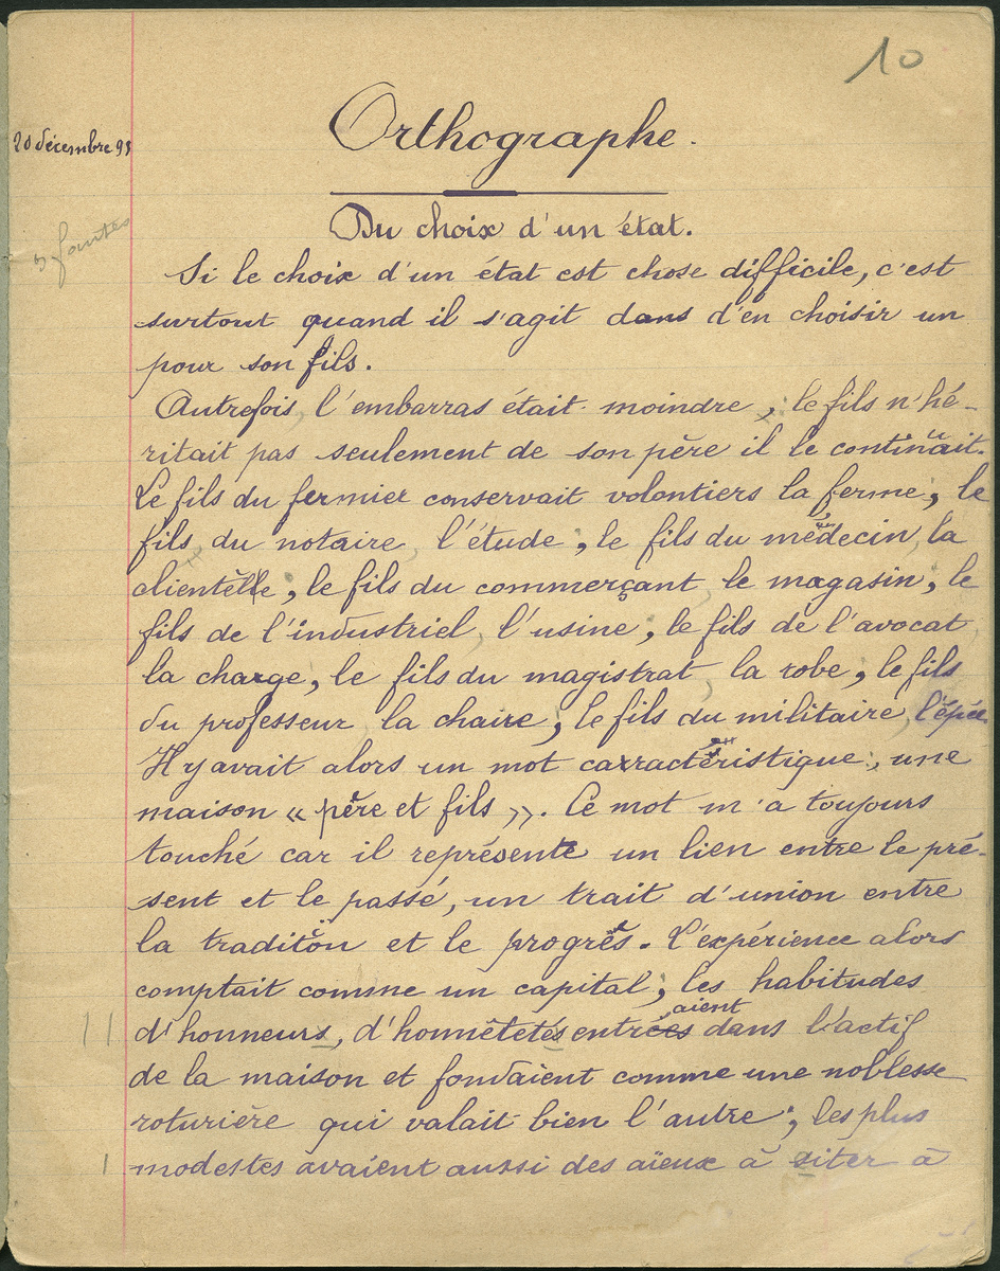 10
Orthographe.
20 décembre 99
Du choix d'un état.
fautes
Si le choix d'un état est chose difficile, c'est
surtout quand il s'agit dans d'en choisir un
pour son fils.
Autrefois, l'embarras était moindre, le fils n'hé-
ritait pas seulement de son père il le continuait.
Le fils du fermier conservait volontiers la ferme, le
fils du notaire, l'étude, le fils du médecin, la
clientèlle, le fils du commerçant, le magasin, le
fils de l'industriel, l'usine, le fils de l'avocat,
la charge, le fils du magistrat, la robe, le fils
du professeur, la chaire, le fils du militaire, l'épée.
Il y avait alors un mot carractéristique, une
maison « père et fils ». Ce mot m'a toujours
touché car il représente un lien entre le pré-
sent et le passé, un trait d'union entre
la tradition et le progrès. L'expérience alors
comptait comme un capital; les habitudes
aient
d'honneurs, d'honnêtetés entrées dans l'actif
de la maison et fondaient comme une noblesse
roturière qui valait bien l'autre; les plus
modestes avaient aussi des aïeux à siter à